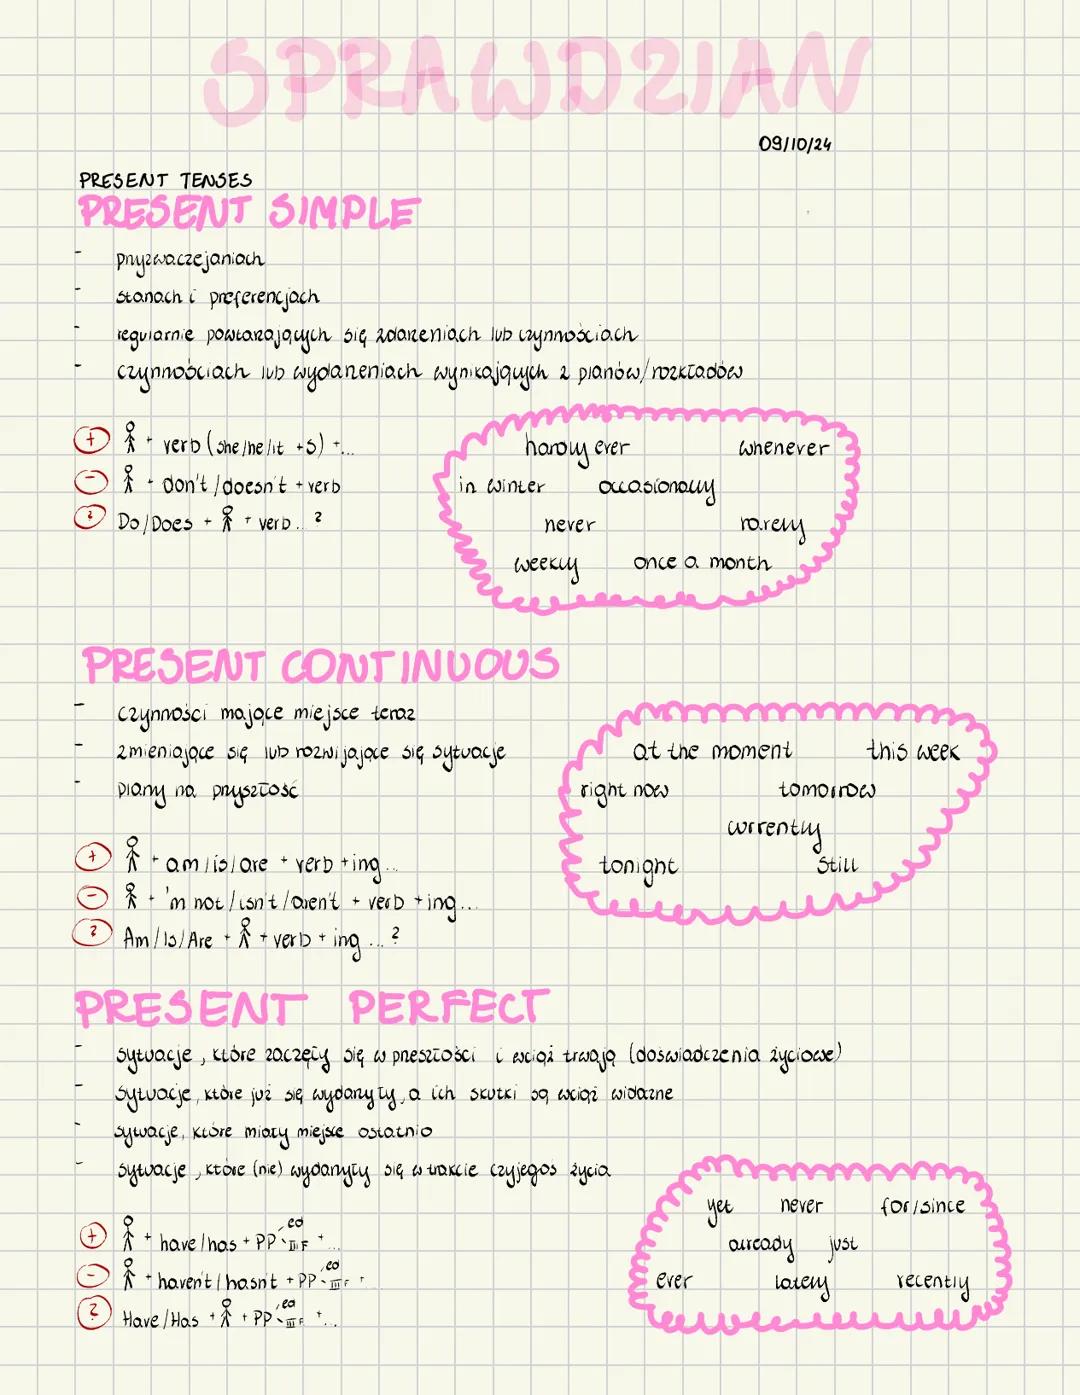 SPRAWDZIAN
09/10/24
PRESENT TENSES
PRESENT SIMPLE
- przyzwaczejaniach
- stanach i preferencjach
- regularnie powtarzających się zdarzeniach lub czynnościach
- czynnościach lub wydarzeniach wynikających z planów/rozkładów
+ verb (she/he/it +s) +...
- + don't/doesn't + verb
? Do/Does + + verb...?
hardly ever whenever
in winter occasionally
never rarely
weekly once a month
PRESENT CONTINUOUS
- czynności mające miejsce teraz
- zmieniające się lub rozwijające się sytuacje
- plany na przyszłość
+ + am/is/are + verb +ing...
- + 'm not/isn't/aren't + verb +ing...
? Am/Is/Are + + verb + ing...?
at the moment this week
right now tomorrow
currently
tonight still
PRESENT PERFECT
- sytuacje, które zaczęły się w przeszłości i wciąż trwają (doświadczenia życiowe)
- sytuacje, które już się wydarzyły, a ich skutki są wciąż widoczne
- sytuacje, które miały miejsce ostatnio
- sytuacje, które (nie) wydarzyły się w trakcie czyjegoś życia
+ + have/has + PP ed III F +...
- + haven't/hasn't + PP ed III F +
? Have/Has + + PP ed III F +...
yet never for/since
already just
ever lately recently